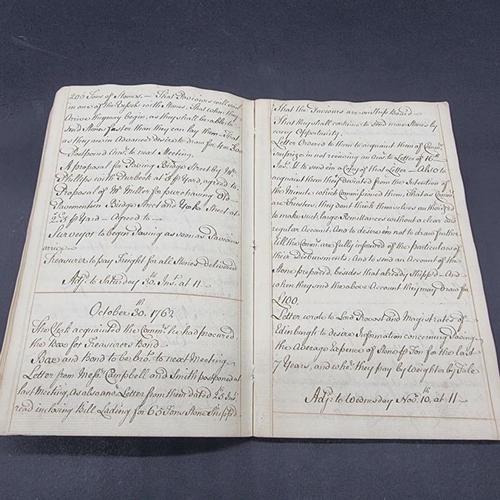 200 Tons of Stones. — That Paviours will
in one of the Vessels with Stones. That when they
Arrive they may begin, as they shall be able to
send Stones faster than they can lay them. That
as they are in Advance desire to draw for
Postponed Ansr. to next Meeting.
A proposal for Paving Bridge Street by
Phillips with Purbeck at yard, agreed to.
Proposal of Mr. Miller for new having Old
Pavement in Bridge Street and York Street at
yard — Agreed to —
Surveyor to begin Paving as soon as Paviours
arrive —
Treasurer to pay Freight for all Stones delivered
Adj: to Saturday 30. Ins.t at 11 —
October 30th. 1762
The Clerk acquainted the Comm.ee he had procured
the Box for Treasurers bond —
Box and bond to be bro.t to next Meeting —
Letter from Mess.rs Campbell and Smith postponed at
last Meeting, as also another Letter from them dated
read inclosing Bill Lading for 65 Tons Stone Shipp'd
That the Paviours are on Ship Board —
That they shall continue to send more Stones by
every Opportunity.
Letter Ordered to them to acquaint them of Comm.ees
surprize in not receiving an Ans.r to Letter of 16th.
& to send in a Copy of that Letter — Also to
acquaint them they deviated from the Intention of
the Minute, which Commissioned them; That as Comm.ee
are Trustees, they dont think themselves authorized
to make such large Remittances without a clear and
regular Account. And to desire em not to draw further
till the Comm.ee are fully informed of the particulars of
their Disbursements. And to send an Account of the
Stone prepared besides that already Shipp'd — And
when they send the above Account they may draw for
£100.
Letter wrote to Lord Provost and Magistrates of
Edinburgh to desire Information concerning Paving,
the Average Expence of Stone Ton for the last
7 Years, and whe.r they pay by Weight or by Tale
Adj: to Wednesday Nov.r 10th. at 11 —